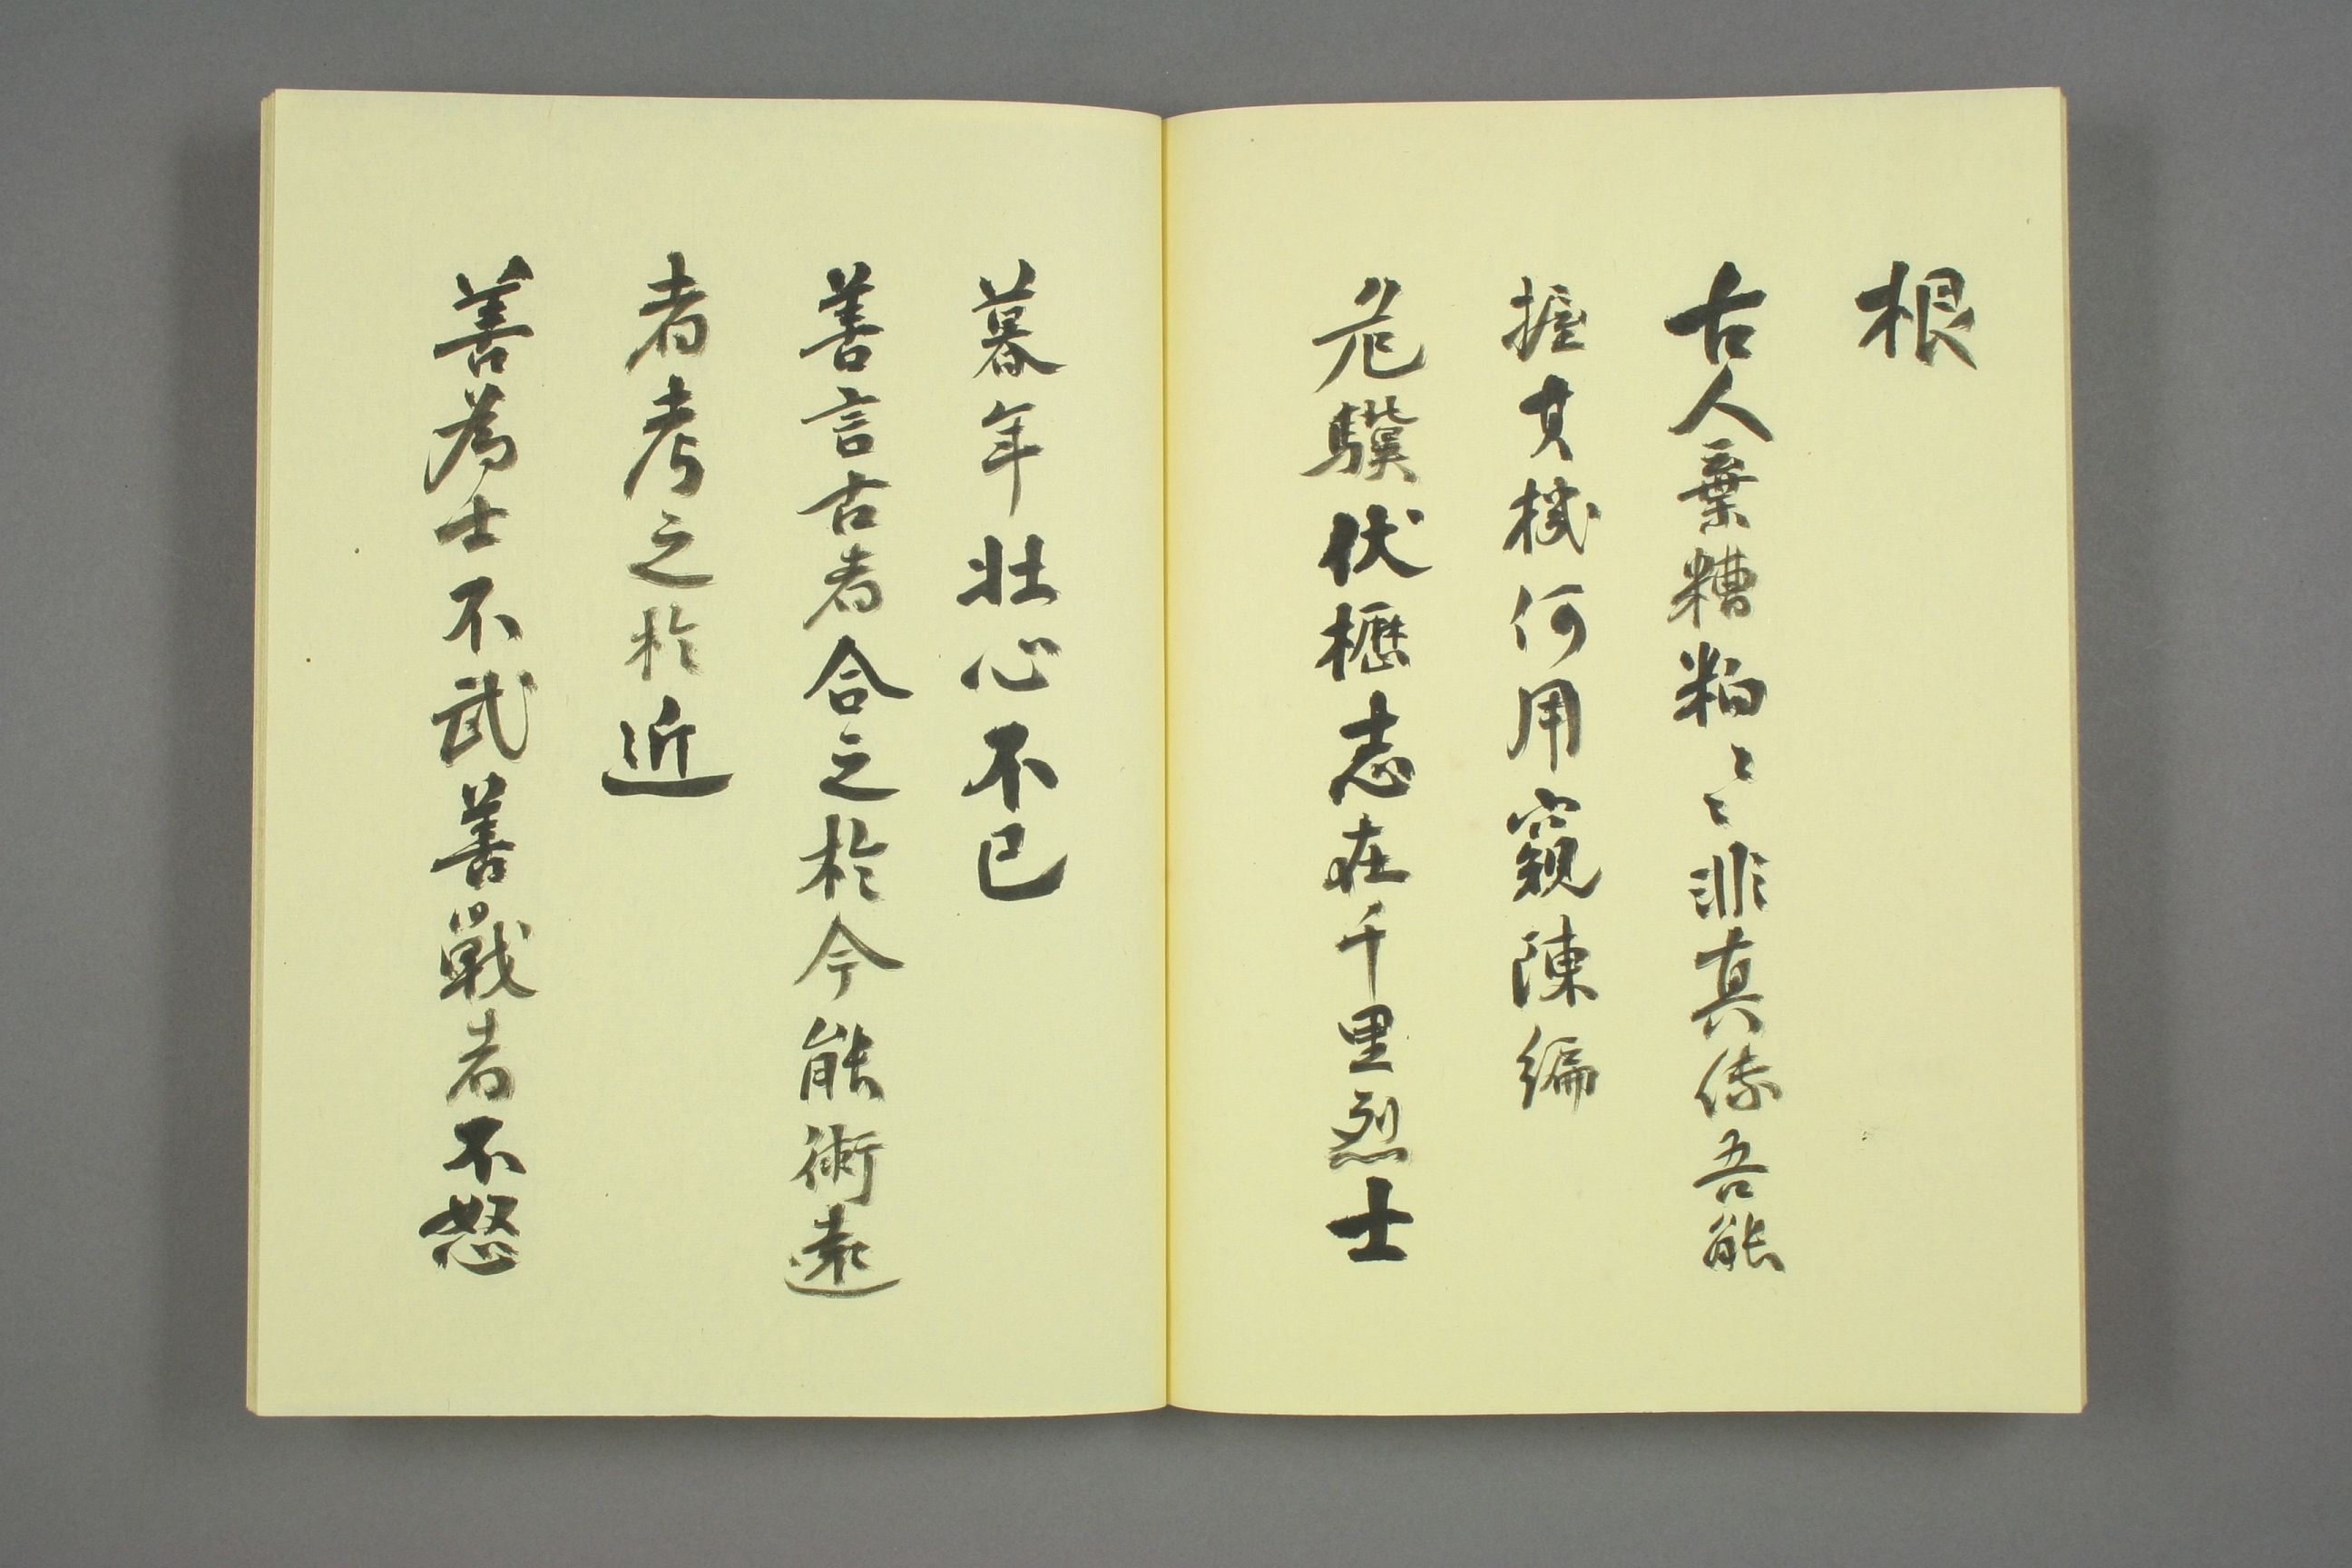 根
古人棄糟粕〻〻非真傳吾能
握其機何用窺陳編
危驥伏櫪志在千里烈士
暮年壯心不已
善言古者合之於今能術遠
者考之於近
善為士不武善戰者不怒